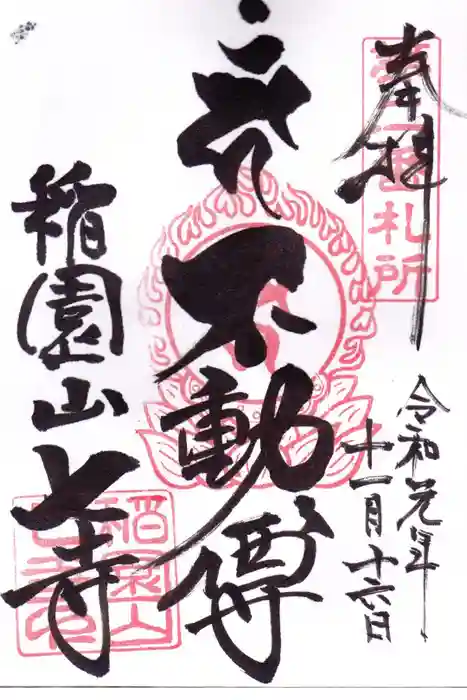 奉拝
札所
令和元年
十一月十六日
不動尊
稲園山七寺
稲園山